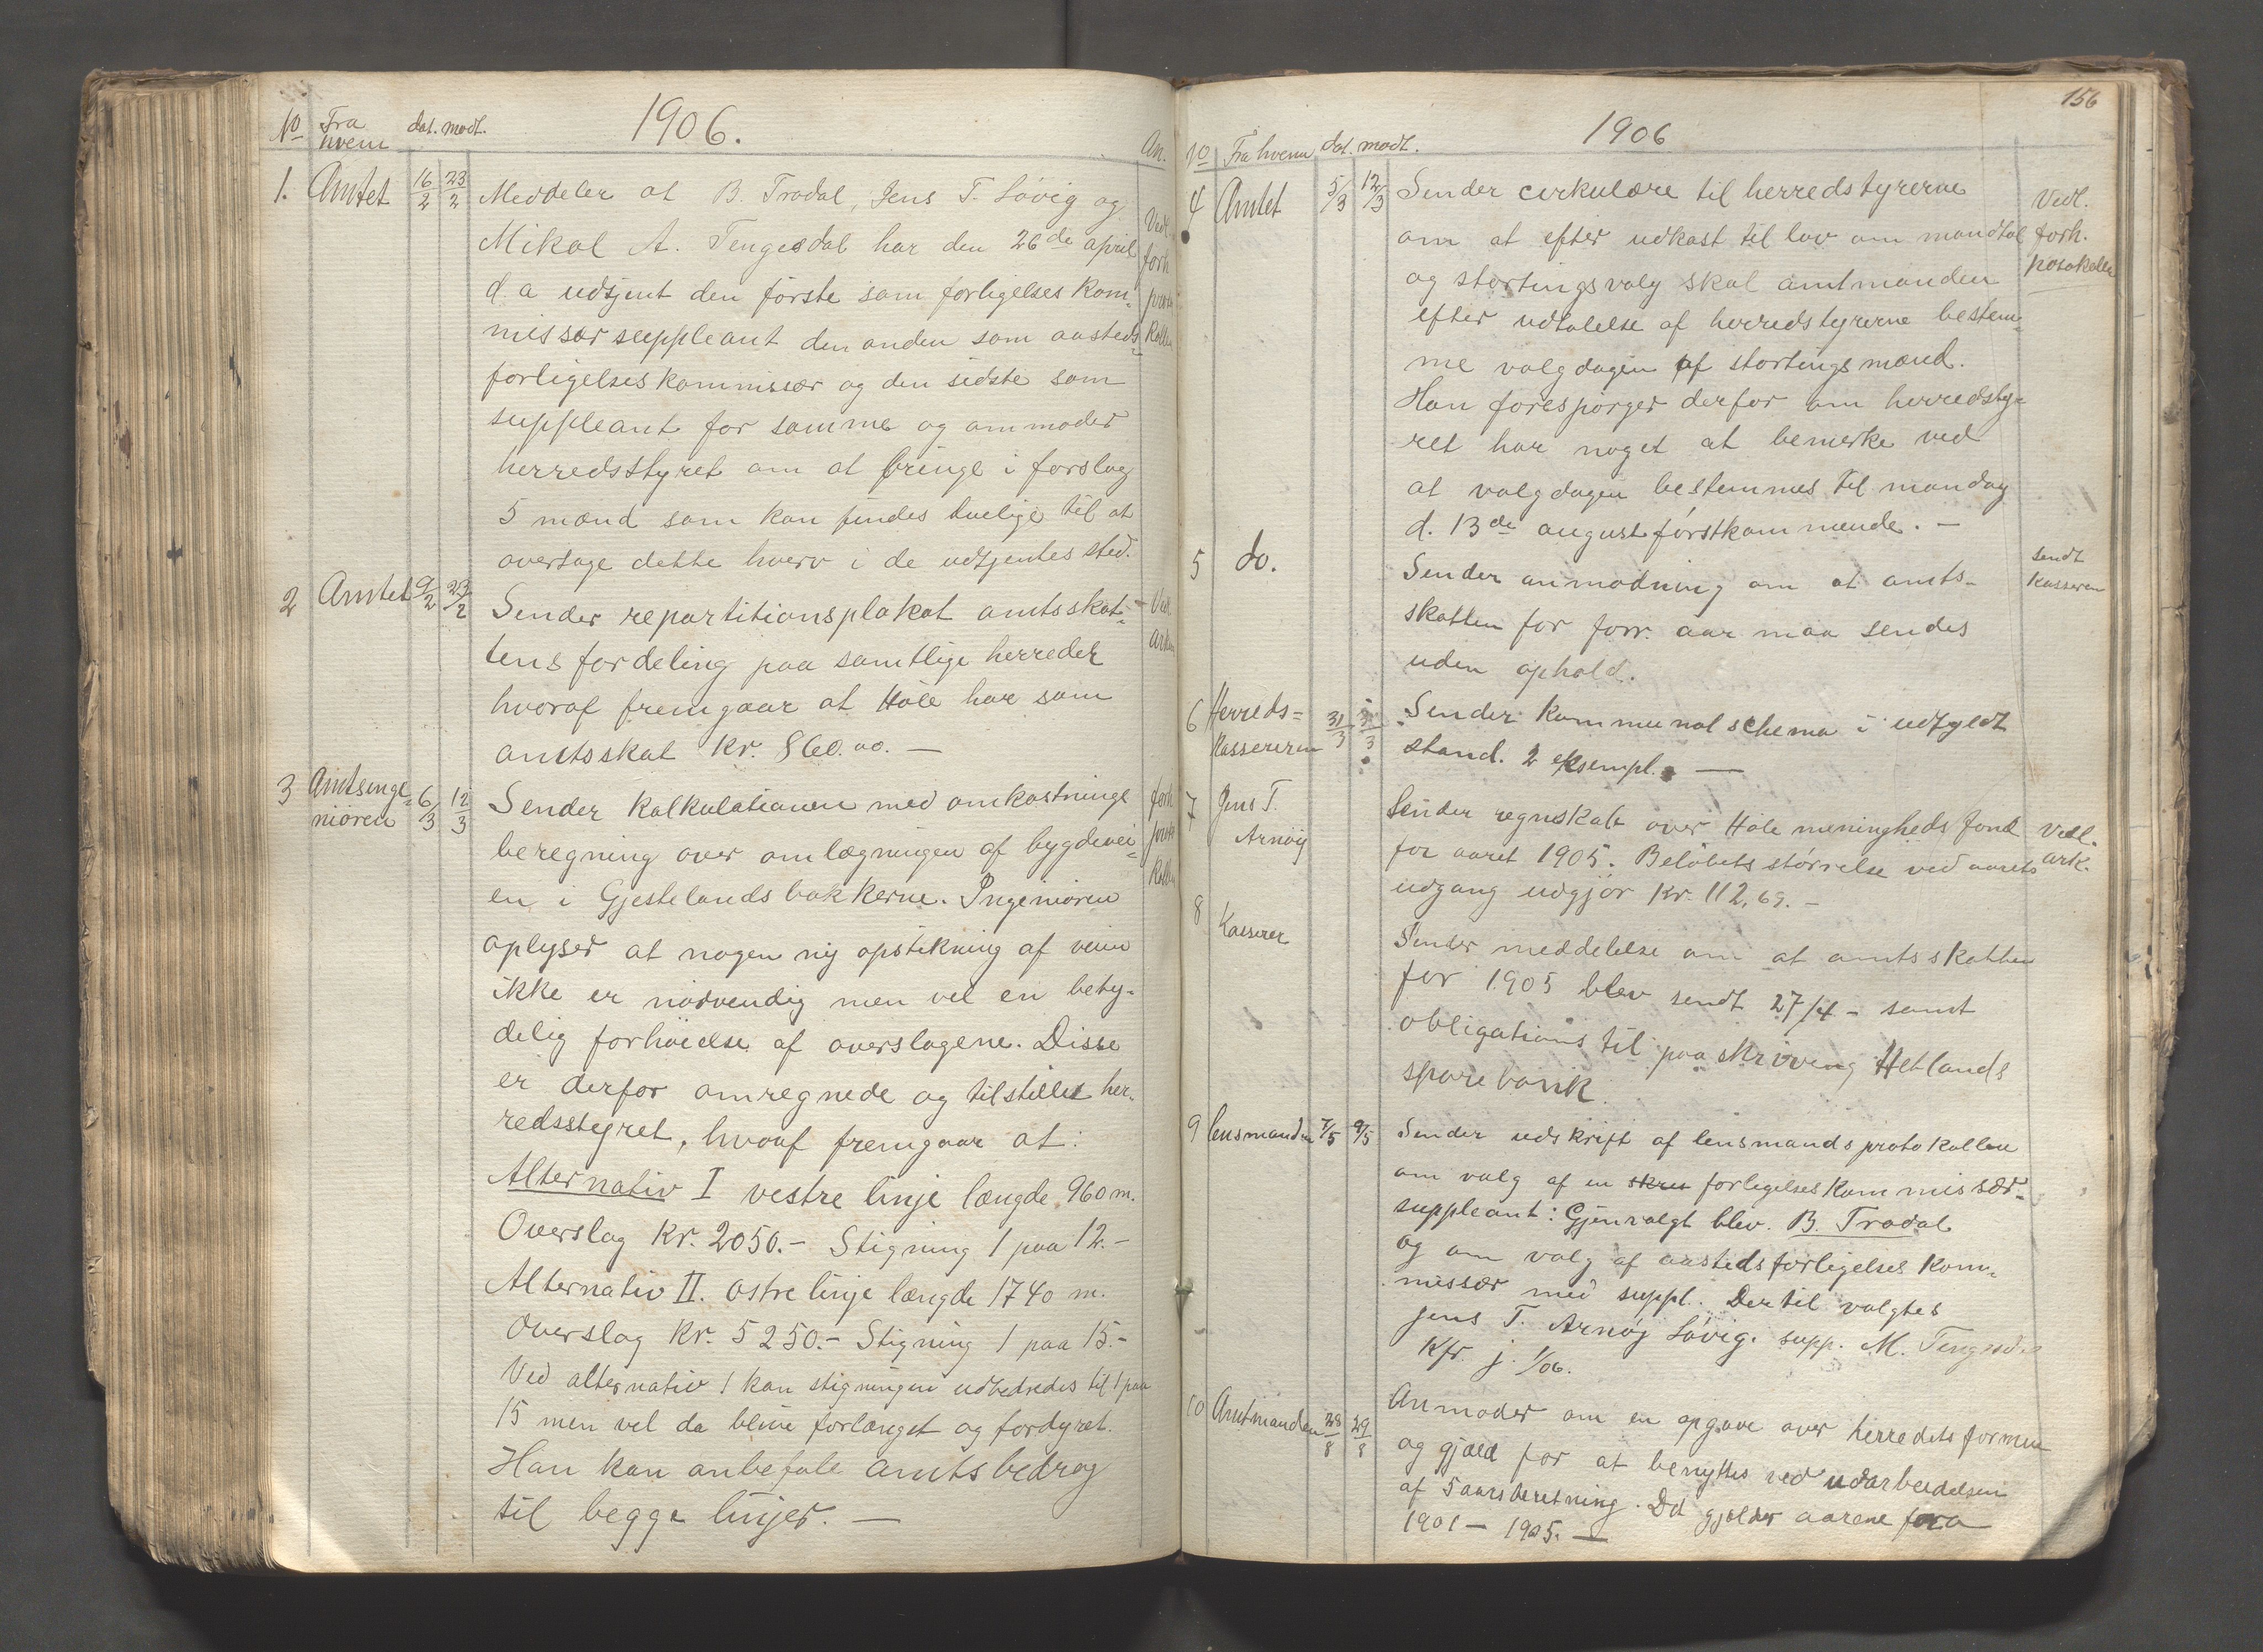 1906.
No Fra hvem dat. modt. An.
1. Amtet 16/2 23/2 Meddeler at B. Trodal, Jens T. Lövig og
Mikal A. Tengesdal har den 26de april
d. a udtjent den förste som forligelses kom-
missær suppleant den anden som aasteds-
forligelseskommissær og den sidste som
suppleant for samme og anmoder
herredsstyret om at bringe i forslag
5 mænd som kan findes duelige til at
overtage dette hverv i de udtjentes sted.
Vedl. forh. proto kollen
2 Amtet 9/2 23/2 Sender repartitionsplakat amtsskat-
tens fordeling paa samtlige herreder
hvoraf fremgaar at Höle har som
amtsskat Kr. 860.00. —
Ved.
3 Amtsinge- niören 6/3 12/3 Sender kalkulationen med omkostnings
beregning over omlægningen af bygdevei-
en i Gjestelandsbakkerne. Ingeniören
oplyser at nogen ny opstikning af veien
ikke er nödvendig men vel en bety-
delig forhöielse af overslagene. Disse
er derfor omregnede og tilstilles her-
redsstyret, hvoaf fremgaar at:
Alternativ I vestre linje længde 960 m.
Overslag Kr. 2050.- Stigning 1 paa 12.-
Alternativ II. östre linje længde 1740 m.
Overslag Kr. 5250.- Stigning 1 paa 15.-
Ved alternativ 1 kan stigningen udbedredes til 1 paa
15 men vel da blive forlænget og fordyret.
Han kan anbefale amtsbedrag
til begge linjer. —
forh proto kollen
156
1906
No Fra hvem dat. modt.
4 Amtet 5/3 12/3 Sender cirkulære til herredstyrerne
om at efter udkast til lov om mandtal
og stortingsvalg skal amtmanden
efter udtalelse af herredstyrerne bestem-
me valgdagen af stortingsmænd.
Han forespörger derfor om herredsty-
ret har noget at bemerke ved
at valgdagen bestemmes til mandag
d. 13de august förstkommende. —
Vedl. forh. protokollen
5 do. Sender anmodning om at amts-
skatten for forr. aar maa sendes
uden ophold.
sendt Kasseren
6 Herreds- Kassereren 31/3 31/3 Sender Kommunal schema i udfyldt
stand. 2 eksempl. —
7 Jens T. Arnöy Sender regnskab over Höle meningheds fond
for aaret 1905. Belöbets störrelse ved aarets
udgang udgjör Kr. 112,69. -
Vedl. ark.
8 Kasserer Sender meddelelse om at amtsskatten
for 1905 blev sendt 27/4 - samt
obligations til paaskriving Hetlands
sparebank.
9 lensmanden 7/5 9/5 Sender udskrift af lensmandsprotokollen
om valg af en forligelseskommissær-
suppleant: Gjenvalgt blev. B. Trodal
og om valg af aastedsforligelses kom-
missær med suppl. Dertil valgtes
Jens T. Arnöy Lövig. supp. M. Tengesd.
Kfr. j. 1/06.
10 Amtmanden 28/8 29/8 Anmoder om en opgave over herredets formue
og gjæld for at benyttes ved udarbeidelsen
af 5aarsberetning. Det gjelder aarene fra
1901 — 1905. —